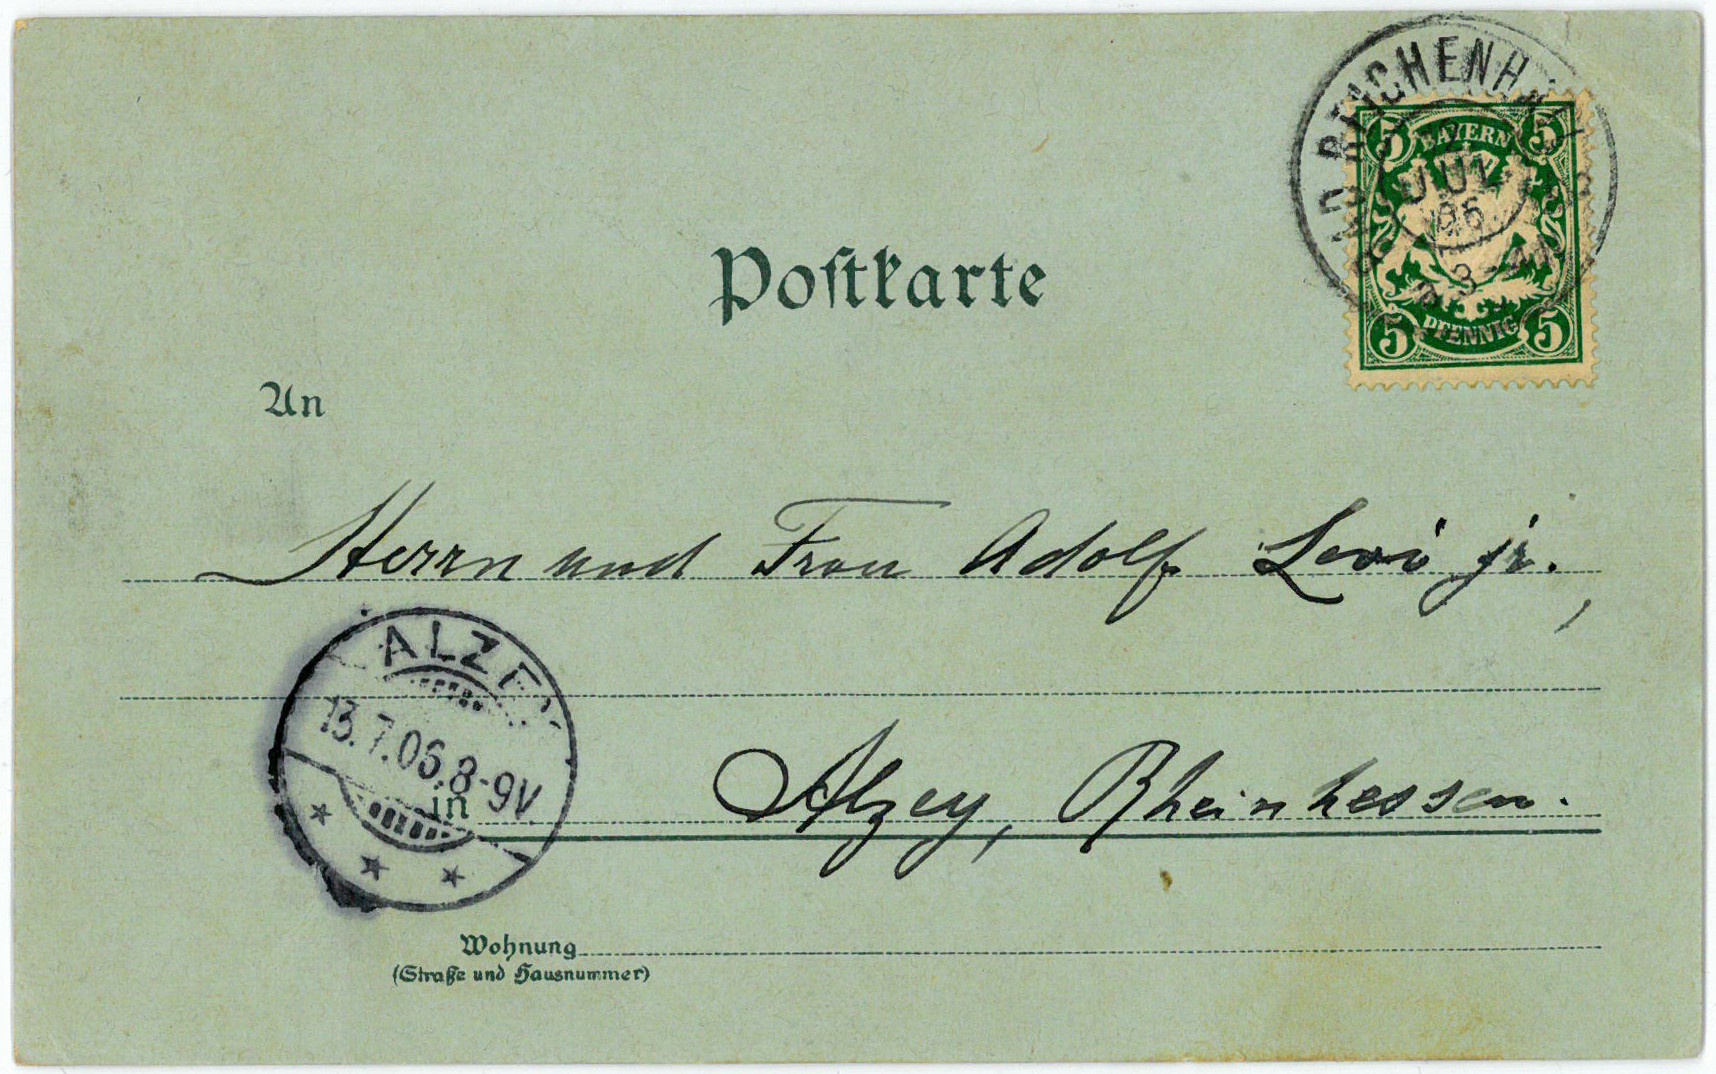 BAD REICHENHALL
5 BAYERN 5
JUL
06
5 PFENNIG 5
Postkarte
An
Herrn und Frau Adolf Levi jr.,
ALZEY
13.7.06.8-9V.
in Alzey, Rheinhessen.
Wohnung
(Straße und Hausnummer)